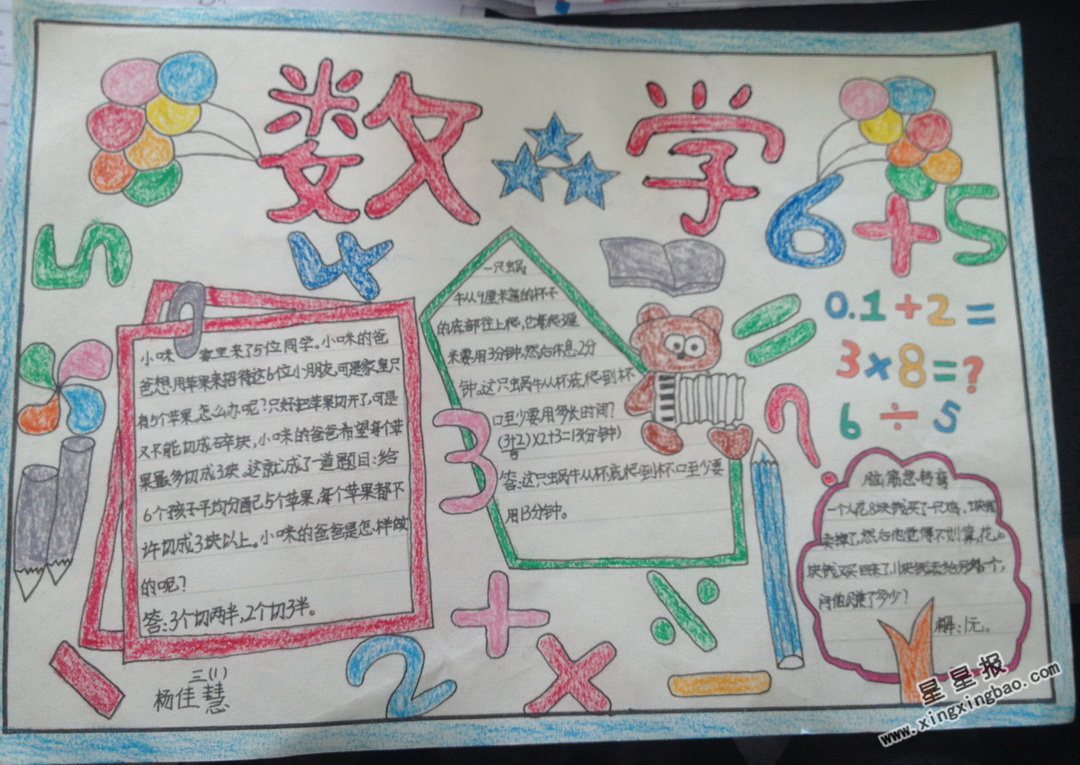 数学
6+5
5
4
0.1+2=
3×8=?
6÷5
小咪 家里来了5位同学。小咪的爸
爸想用苹果来招待这6位小朋友,可是家里只
有5个苹果。怎么办呢?只好把苹果切开了,可是
又不能切成碎块,小咪的爸爸希望每个苹
果最多切成3块。这就成了一道题目:给
6个孩子平均分配5个苹果,每个苹果都不
许切成3块以上。小咪的爸爸是怎样做
的呢?
答:3个切两半,2个切3半。
一只蜗
牛从9厘米高的杯子
的底部往上爬,它每爬3厘
米要用3分钟,然后休息2分
钟。这只蜗牛从杯底爬到杯
口至少要用多长时间?
(3+2)×2+3=13(分钟)
答:这只蜗牛从杯底爬到杯口至少要
用13分钟。
3
=
?
脑筋急转弯
一个人花8块钱买了一只鸡,
卖掉了,然后他觉得不划算,花
块钱又买回来了,11块钱卖给另外一个,
问他赚了多少?
解:1元。
+
÷
2
×
三(1)
杨佳慧
星星报
www.xingxingbao.com